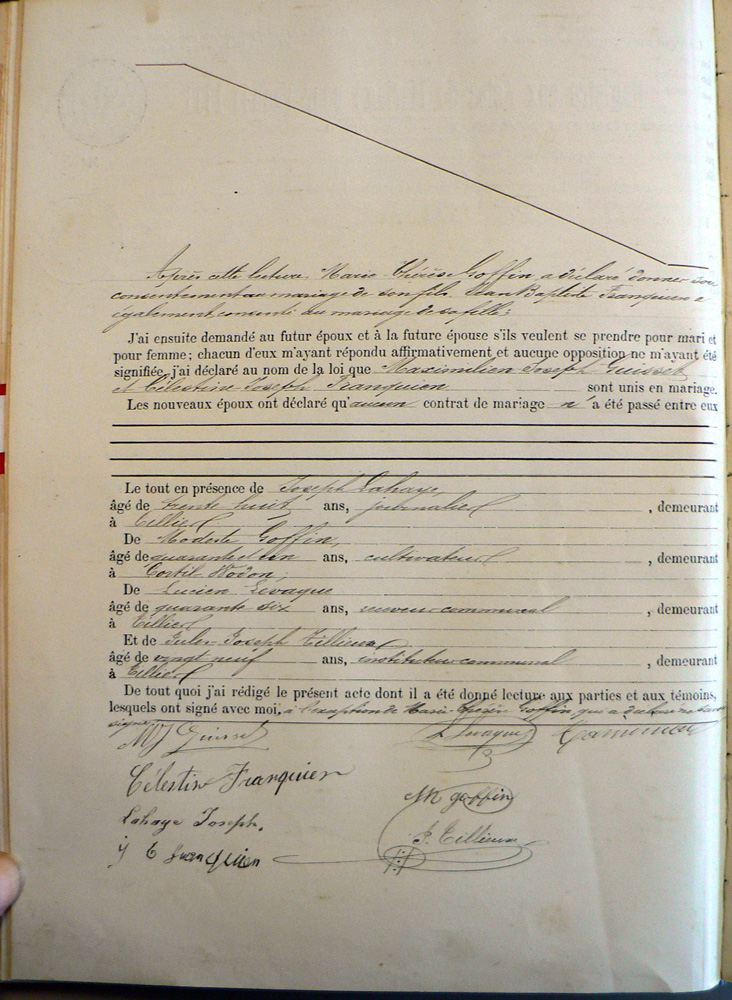 Après cette lecture, Marie-Thérèse Goffin, a déclaré donner son
consentement au mariage de son fils. Jean Baptiste Franquien a
également consenti au mariage de sa fille.
J'ai ensuite demandé au futur époux et à la future épouse s'ils veulent se prendre pour mari et
pour femme ; chacun d'eux m'ayant répondu affirmativement et aucune opposition ne m'ayant été
signifiée, j'ai déclaré au nom de la loi que Maximilien Joseph Guisset
et Célestine Joseph Franquien sont unis en mariage.
Les nouveaux époux ont déclaré qu'aucun contrat de mariage n'a été passé entre eux
Le tout en présence de Joseph Lahaye,
âgé de trente huit ans, journalier , demeurant
à Tillier
De Modeste Goffin,
âgé de quarante et un ans, cultivateur , demeurant
à Cortil Wodon,
De Lucien Levaque
âgé de quarante six ans, receveur communal , demeurant
à Tillier
Et de Jules Joseph Tillieux
âgé de vingt neuf ans, instituteur communal , demeurant
à Tillier
De tout quoi j'ai rédigé le présent acte dont il a été donné lecture aux parties et aux témoins,
lesquels ont signé avec moi, à l'exception de Marie-Thérèse Goffin qui a déclaré ne savoir
signer
MJ Guisset L Levaque
Célestine Franquien
M goffin
Lahaye Joseph.
J. Tillieux
J B franquien